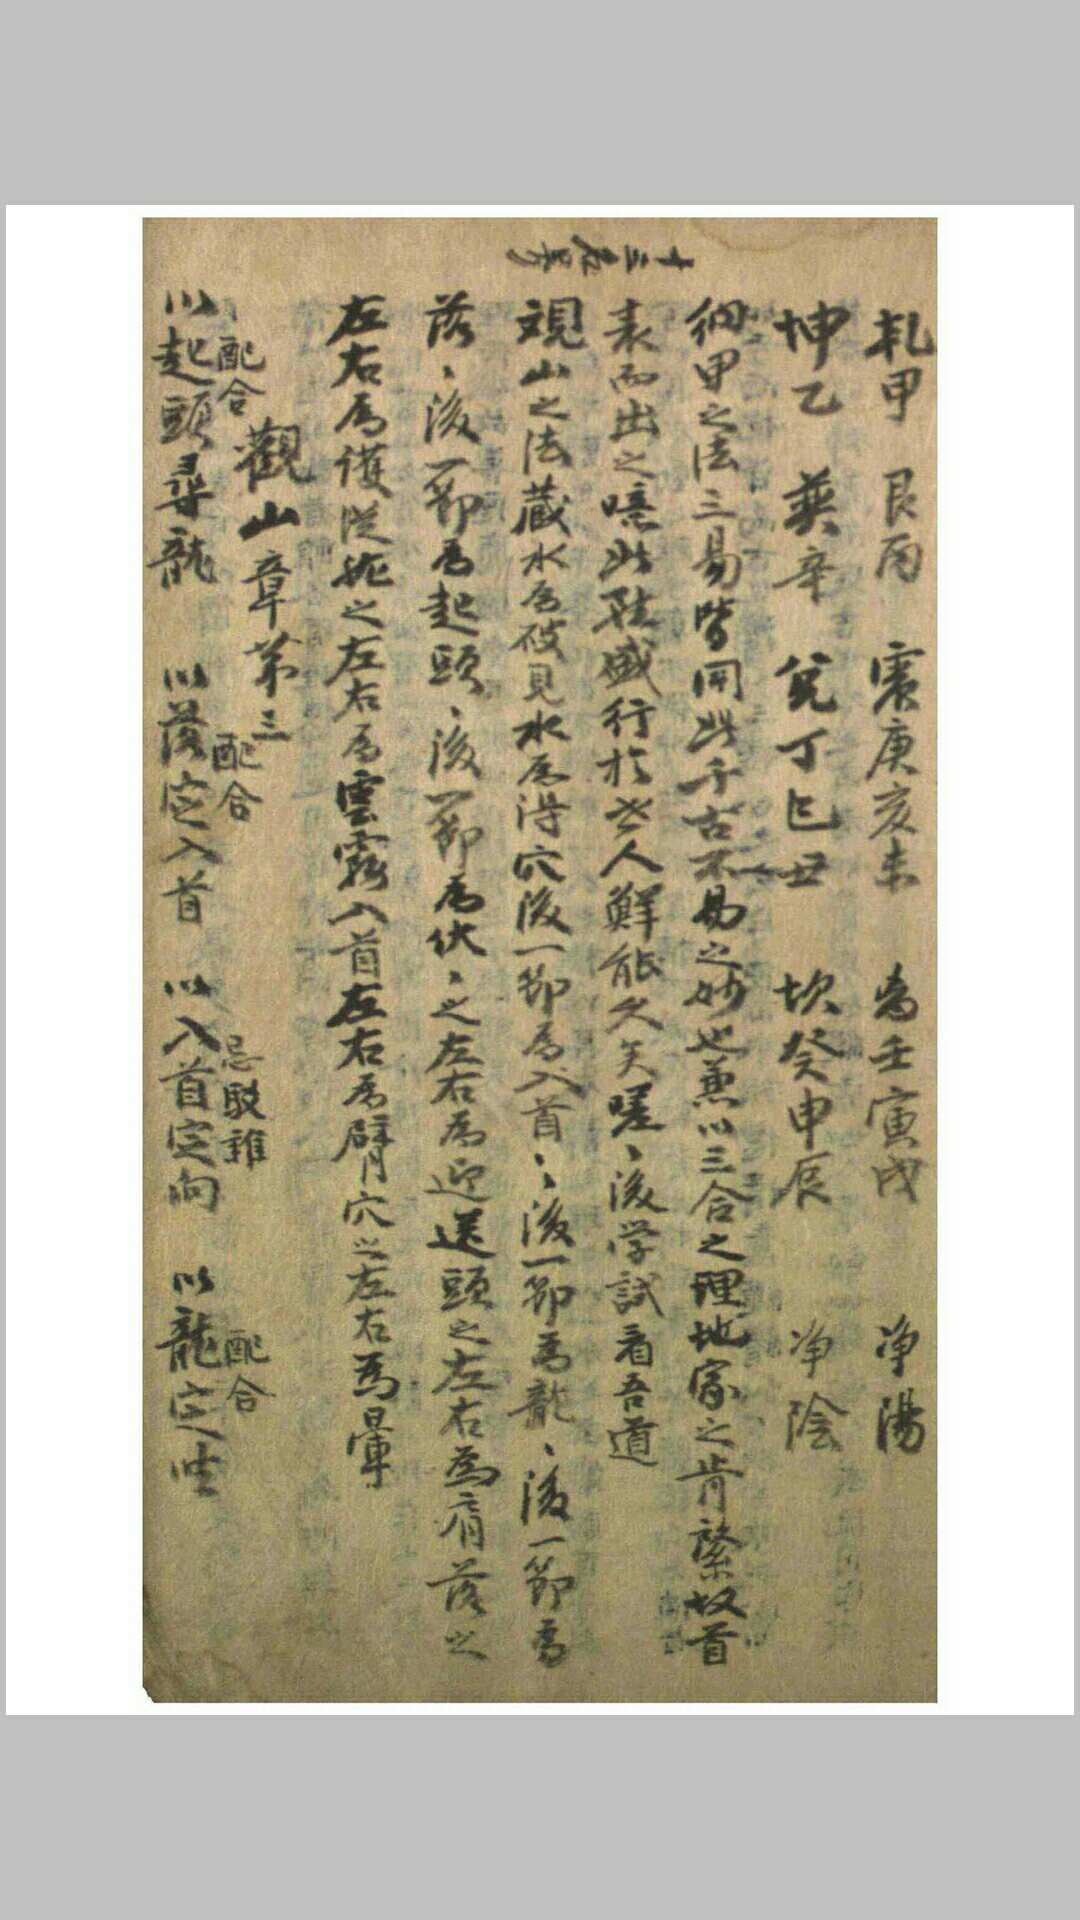 乹甲 艮丙 震庚亥未 离壬寅戌 净陽
坤乙 巽辛 兊丁巳丑 坎癸申辰 净陰
納甲之法三易皆同此千古不易之妙也兼以三合之理地家之肯綮故首
表而出之噫此盛行於世人鮮能久矣嗟、後学試看吾道
观山之法藏水為破見水為得穴後一節為入首、後一節為龍、後一節為
落、後一節為起頭、後一節為伏、之左右為迎送頭之左右為肩落之
左右為護從龍之左右為雲霧入首左右為臂穴之左右為暈
觀山章第三
配合 配合 忌駁雜 配合
以起頭尋龍 以落定入首 以入首定向 以龍定坐